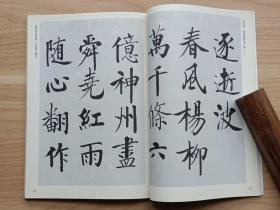 逐逝波
春風楊柳
萬千條六
億神州盡
舜堯紅雨
随心翻作